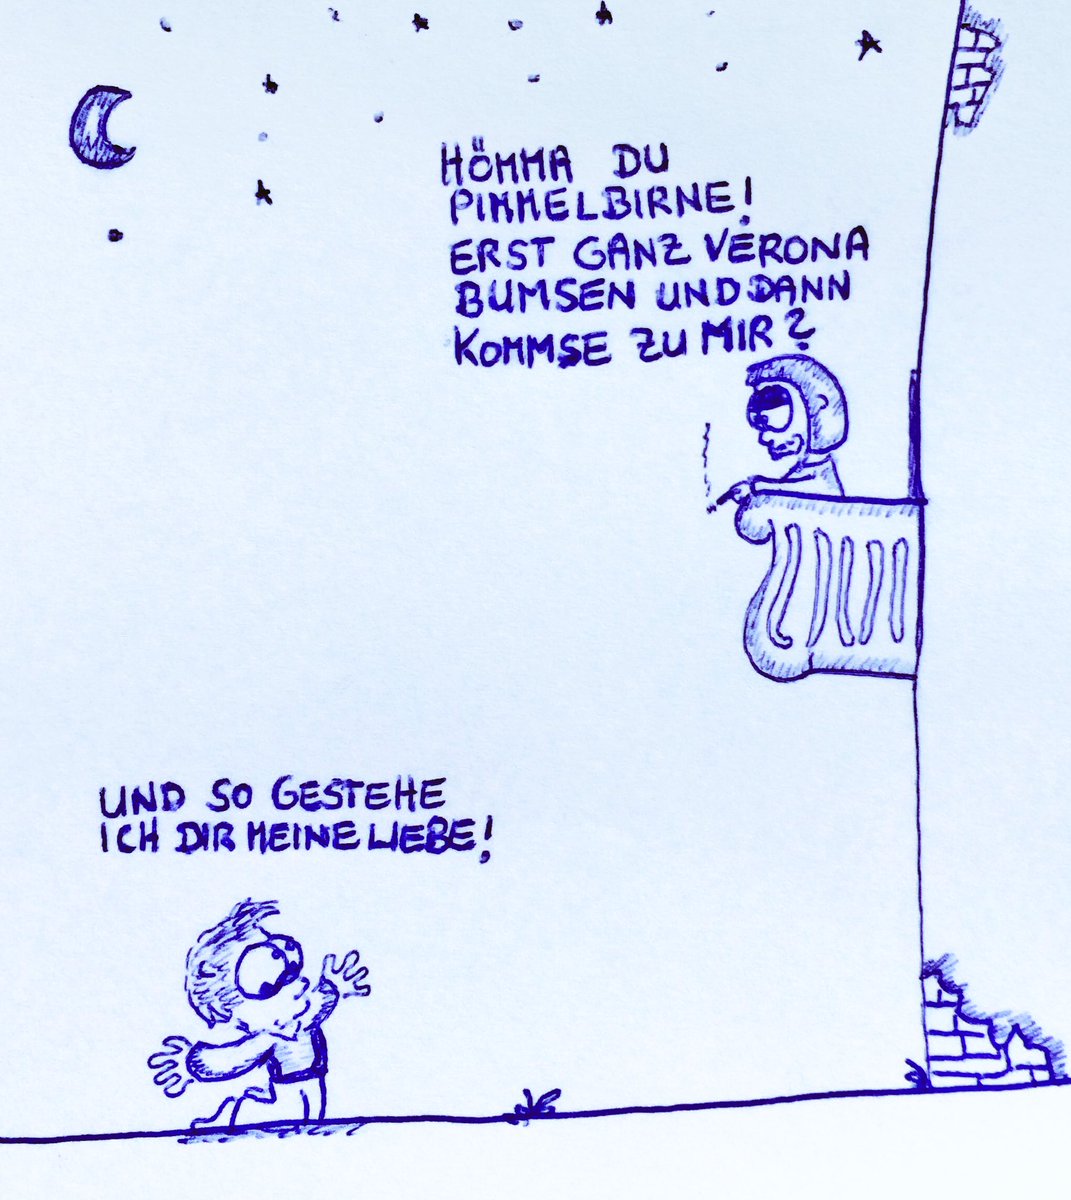 HÖMMA DU
PIMMELBIRNE!
ERST GANZ VERONA
BUMSEN UND DANN
KOMMSE ZU MIR?
UND SO GESTEHE
ICH DIR MEINE LIEBE!